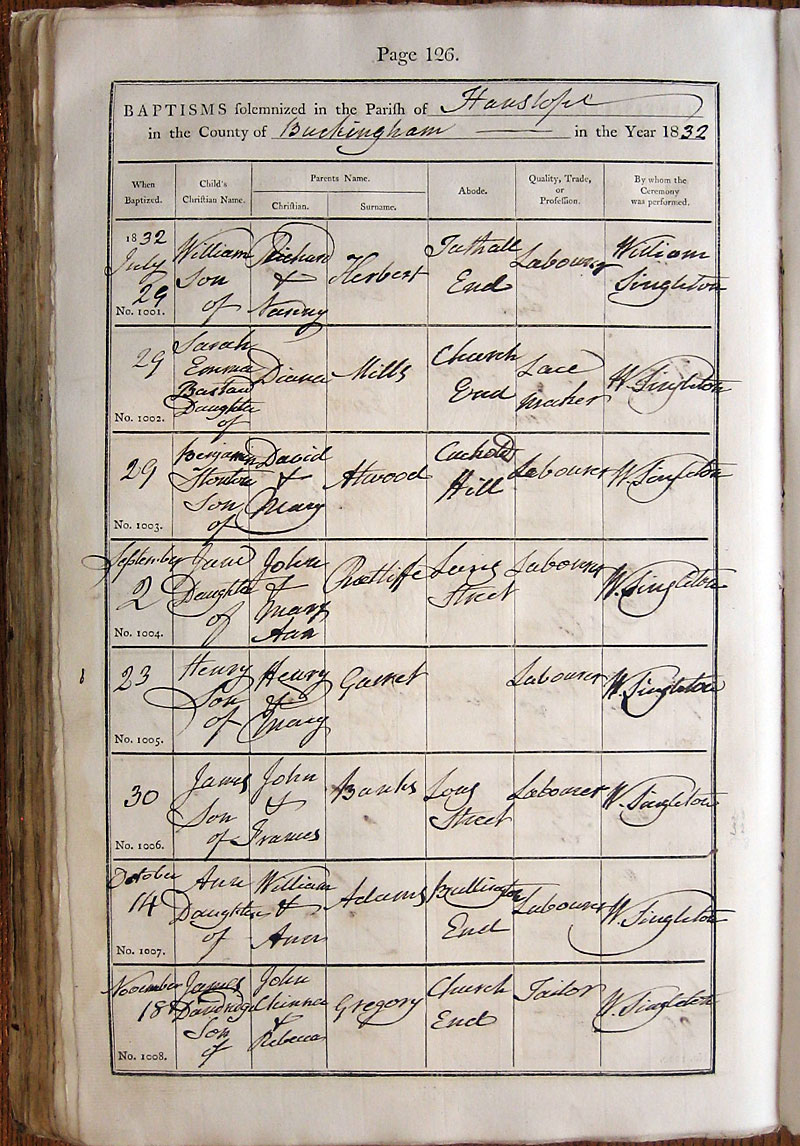 Page 126.
BAPTISMS solemnized in the Parish of Hanslope
in the County of Buckingham in the Year 1832
When Baptized.
Child's Christian Name.
Parents Name.
Christian.
Surname.
Abode.
Quality, Trade, or Profession.
By whom the Ceremony was performed.
1832 July 29
William Son of
Richard & Nanny
Herbert
Tathall End
Labourer
William Singleton
No. 1001.
29
Sarah Emma Bastard Daughter of
Diana
Mills
Church End
Lace Maker
W. Singleton
No. 1002.
29
Benjamin Stonton Son of
David & Mary
Atwood
Cuckold Hill
Labourer
W. Singleton
No. 1003.
September 2
Jane Daughter of
John & Mary Ann
Ratliffe
Long Street
Labourer
W. Singleton
No. 1004.
23
Henry Son of
Henry & Mary
Garret
Labourer
W. Singleton
No. 1005.
30
James Son of
John & Frances
Banks
Long Street
Labourer
W. Singleton
No. 1006.
October 14
Ann Daughter of
William & Ann
Adams
Bullington End
Labourer
W. Singleton
No. 1007.
November 18
James Dandridge Son of
John & Rebecca
Gregory
Church End
Tailor
W. Singleton
No. 1008.